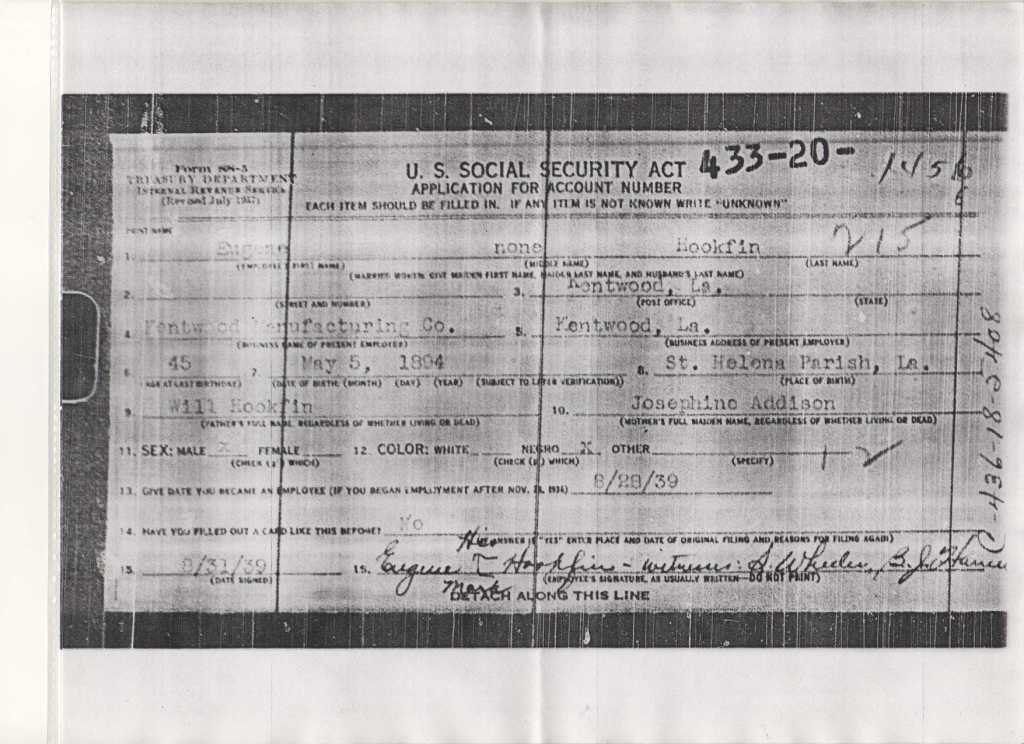 Form SS-5
TREASURY DEPARTMENT
INTERNAL REVENUE SERVICE
(Revised July 1937)
U. S. SOCIAL SECURITY ACT
APPLICATION FOR ACCOUNT NUMBER
433-20-
EACH ITEM SHOULD BE FILLED IN. IF ANY ITEM IS NOT KNOWN WRITE "UNKNOWN"
PRINT NAME
215
1. Eugene none Hookfin
(EMPLOYEE'S FIRST NAME) (MIDDLE NAME) (LAST NAME)
(MARRIED WOMEN: GIVE MAIDEN FIRST NAME, MAIDEN LAST NAME, AND HUSBAND'S LAST NAME)
2. 3. Kentwood, La.
(STREET AND NUMBER) (POST OFFICE) (STATE)
4. Kentwood Manufacturing Co. 5. Kentwood, La.
(BUSINESS NAME OF PRESENT EMPLOYER) (BUSINESS ADDRESS OF PRESENT EMPLOYER)
6. 45 7. May 5, 1894 8. St. Helena Parish, La.
(AGE AT LAST BIRTHDAY) (DATE OF BIRTH: (MONTH) (DAY) (YEAR) (SUBJECT TO LATER VERIFICATION)) (PLACE OF BIRTH)
9. Will Hookfin 10. Josephine Addison
(FATHER'S FULL NAME, REGARDLESS OF WHETHER LIVING OR DEAD) (MOTHER'S FULL MAIDEN NAME, REGARDLESS OF WHETHER LIVING OR DEAD)
11. SEX: MALE X FEMALE 12 COLOR: WHITE NEGRO X OTHER 1 2
(CHECK (✓) WHICH) (CHECK (✓) WHICH) (SPECIFY)
13. GIVE DATE YOU BECAME AN EMPLOYEE (IF YOU BEGAN EMPLOYMENT AFTER NOV. 24, 1936) 8/28/39
14. HAVE YOU FILLED OUT A CARD LIKE THIS BEFORE? No
(ANSWER IF "YES" ENTER PLACE AND DATE OF ORIGINAL FILING AND REASONS FOR FILING AGAIN)
His
15. 8/31/39 15. Eugene T Hookfin - witness: S. Wheeler, B. J.
(DATE SIGNED) (EMPLOYEE'S SIGNATURE, AS USUALLY WRITTEN—DO NOT PRINT)
Mark
DETACH ALONG THIS LINE